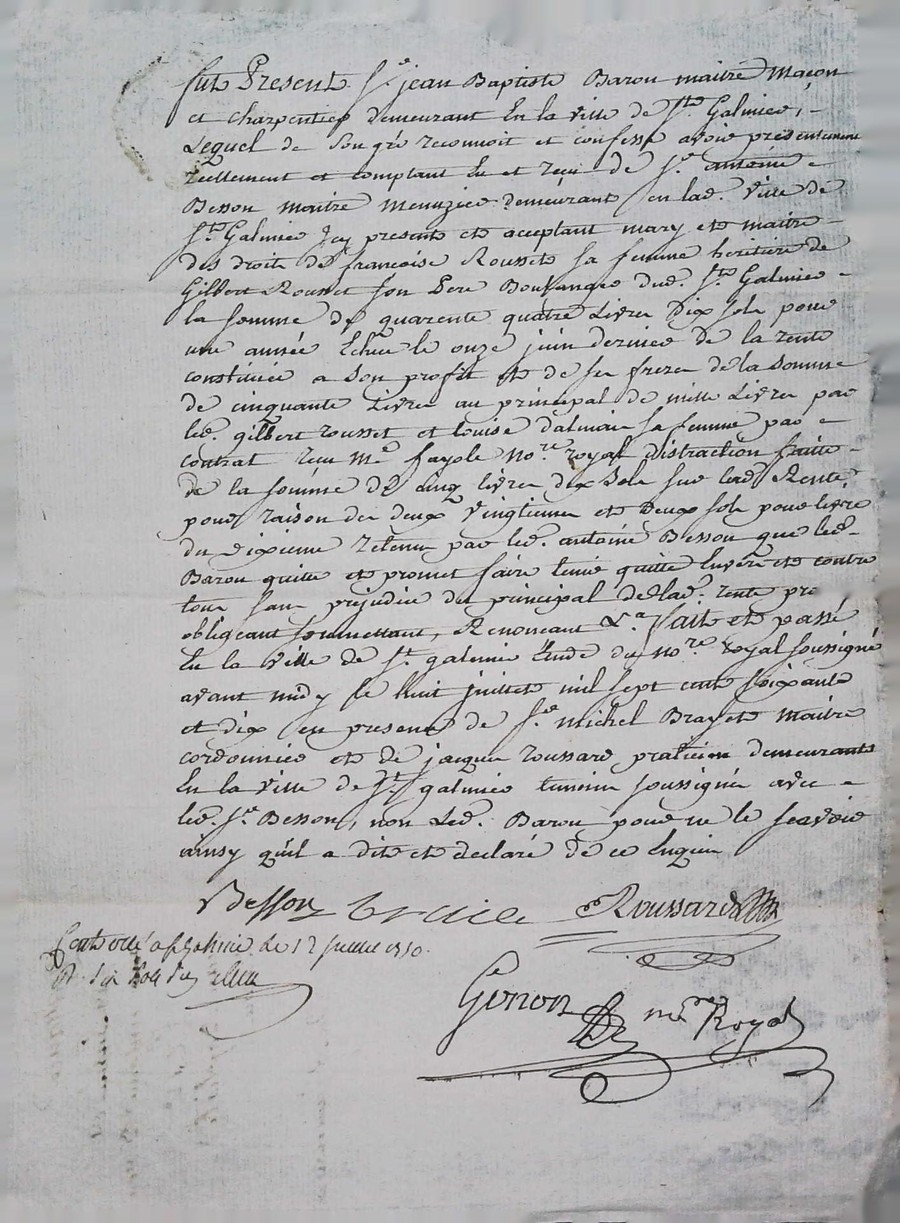 fut Present Sr jean Baptiste Barou maitre Maçon
et charpentier demeurant En la ville de St. Galmier,
Lequel de son gré reconnoit et confesse avoir présentement
reellement et comptant Eu et reçu de Sr. antoine
Besson maitre menuzier demeurant en lad. Ville de
St. Galmier Icy present et aceptant mary et maitre
des droits de françoise Rousset sa femme heritiere de
Gilbert Rousset son Pere Boulanger dud. St. Galmier
la somme de quarente quatre Livres Dix sols pour
une année Echue le onze juin dernier de la rente
constituée a son profit et de ses freres de la somme
de cinquante Livres au principal de mille Livres par
led. gilbert rousset et louise dalmais sa femme par
contrat reçu Me. fayole Nore. royal distraction faitte
de la somme de cinq livres dix sols sur lad. Rente,
pour raison des deux vingtiemes et deux sols pour livre
du dixieme retenu par led. antoine Besson que led.
Barou quitte et promet faire tenir quitte Envers et contre
tous sans prejudice du principal de lad. rente pro
obligeant soumettant, Renonceant &a. fait et passé
En la Ville de St. galmier Etude du nore. Royal soussigné
avant midy le huit juillet mil sept cents soixante
et dix en presence de Sr. michel Brayet maitre
cordonnier et de jacques roussard praticien demeurants
En la ville de St. galmier temoins soussignés avec
led. Sr. Besson, non Led. Barou pour ne le sçavoir
ainsy qu'il a dit et declaré de ce Enquis
Besson Roussard
a St Galmier le 12 juillet 1770.
Gonon nore Royal